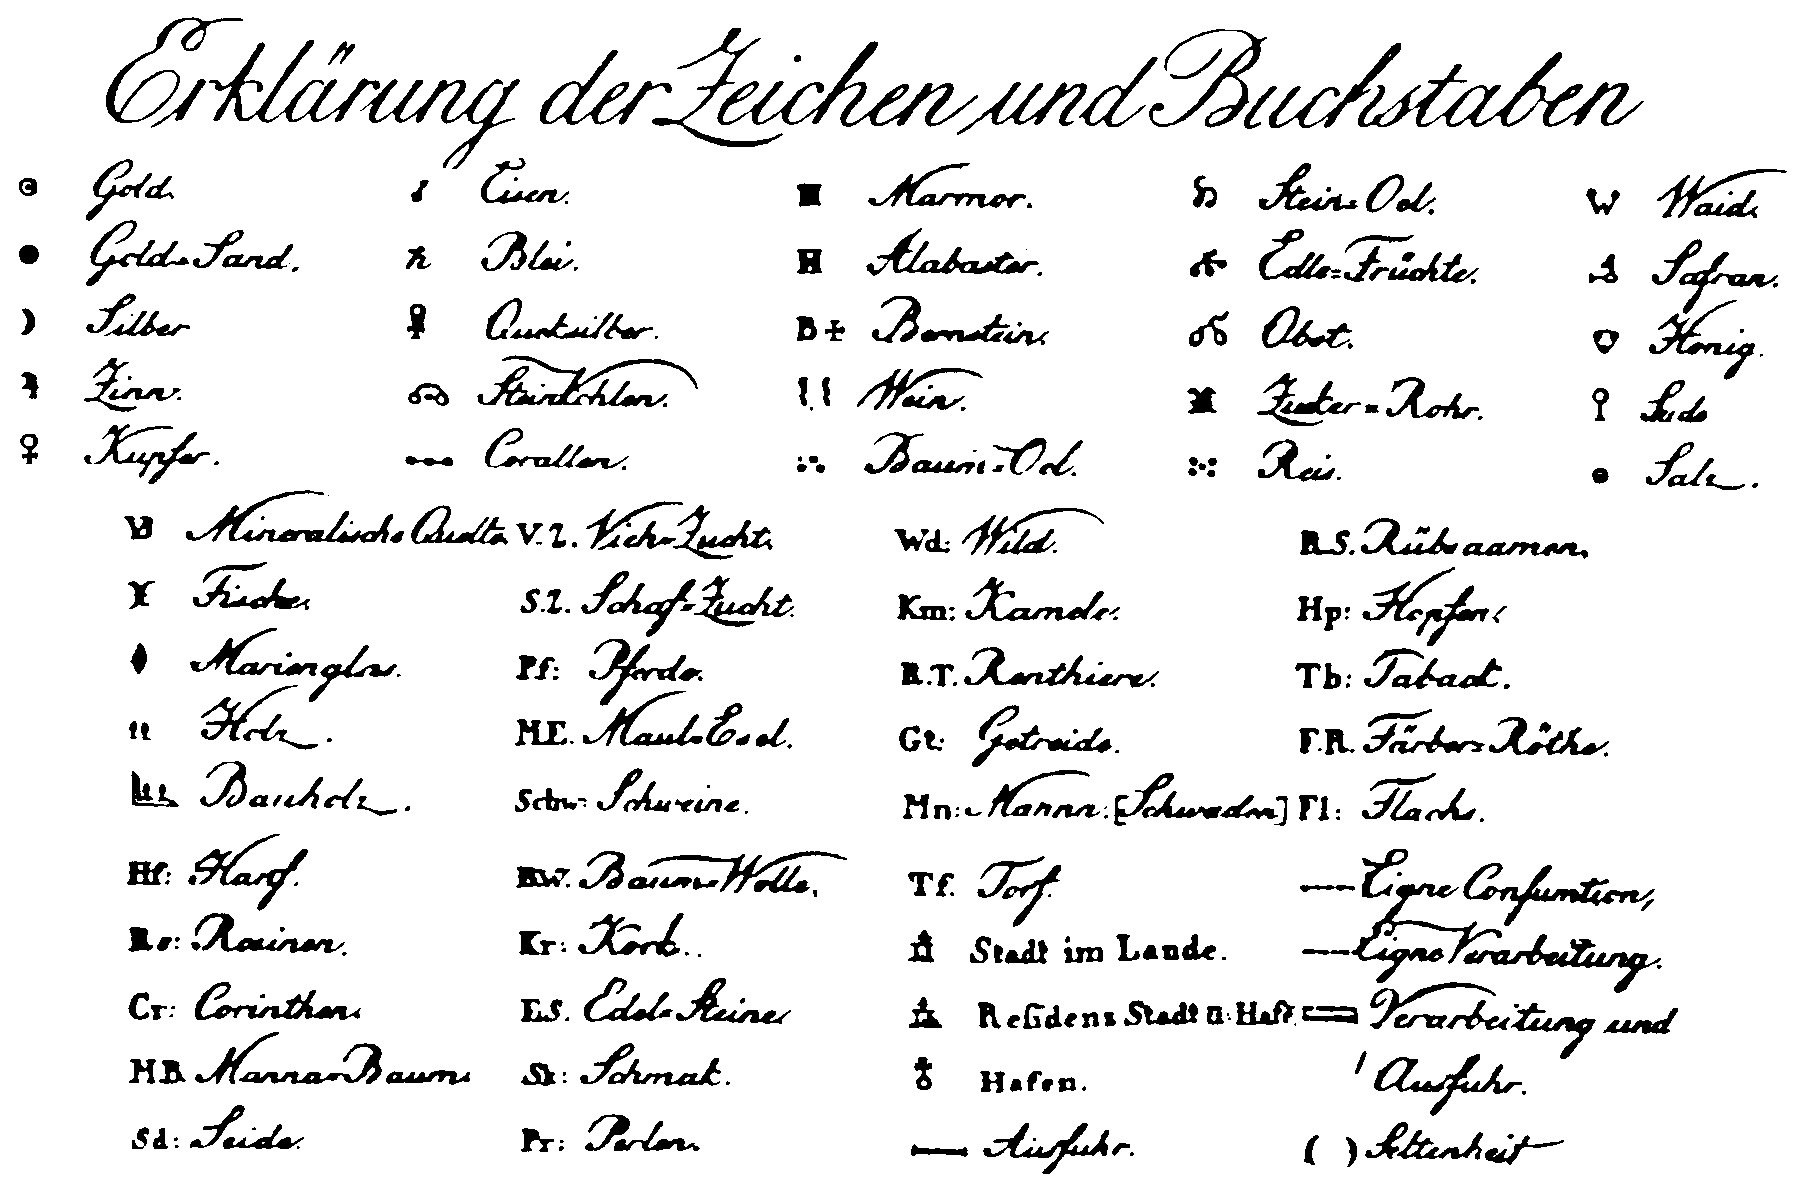 Erklärung der Zeichen und Buchstaben
Gold. Eisen. Marmor. Stein=Oel. W Waid.
Gold=Sand. Blei. Alabaster. Edle=Früchte. Safran.
Silber Quecksilber. B+ Bernstein. Obst. Honig.
Zinn. Steinkohlen. Wein. Zucker=Rohr. Sude
Kupfer. Corallen. Baum=Oel. Reis. Salz.
Mineralische Quelle V.Z. Vieh=Zucht. Wd: Wild. R.S. Rübsaamen.
Fische. S.Z. Schaf=Zucht. Km: Kameele. Hp: Hopfen.
Marienglas. Pf: Pferde. R.T. Renthiere. Tb: Taback.
Holz. M.E. Maul=Esel. Gt: Getreide. F.R. Färber=Röthe.
Bauholz. Schw: Schweine. Mn: Manna. [Schwaden] Fl: Flachs.
Hf: Hanf. BW. Baum=Wolle. Tf. Torf. Eigne Consumtion,
Ro: Rosinen. Kr: Kork. Stadt im Lande. Eigne Verarbeitung.
Cr: Corinthen. E.S. Edel=Steine Residens Stadt u: Haft. Verarbeitung und
M.B. Manna=Baum. Sk: Schmak. Hafen. Ausfuhr.
Sd: Seide. Pr: Perlen. Ausfuhr. ( ) Seltenheit